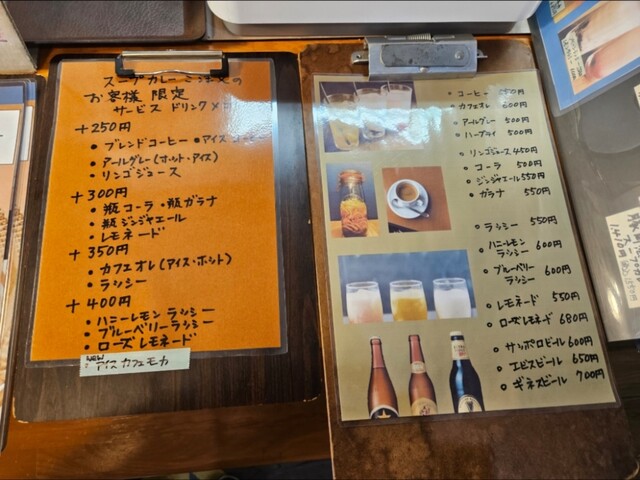 スープカレーご注文の
お客様 限定
サービス ドリンクメ
+250円
• ブレンドコーヒー • アイス
• アールグレー(ホット・アイス)
• リンゴジュース
+300円
• 瓶コーラ • 瓶ガラナ
• 瓶ジンジャエール
• レモネード
+350円
• カフェオレ(アイス・ホット)
• ラッシー
+400円
• ハニーレモン ラッシー
• ブルーベリーラッシー
• ローズレモネード
NEW
アイス カフェモカ
• コーヒー 550円
• カフェオレ 600円
• アールグレー 500円
• ハーブティ 500円
• リンゴジュース 450円
• コーラ 500円
• ジンジャエール 550円
• ガラナ 550円
• ラッシー 550円
• ハニーレモン
ラッシー 600円
• ブルーベリー
ラッシー 600円
• レモネード 550円
• ローズレモネード 680円
• サッポロビール 600円
• エビスビール 650円
• ギネスビール 700円